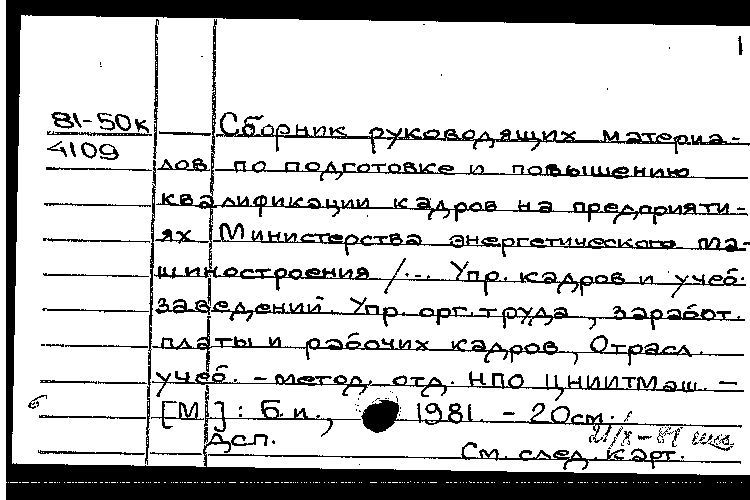 1
81-50к Сборник руководящих материа-
4109 лов по подготовке и повышению
квалификации кадров на предприяти-
ях Министерства энергетического ма-
шиностроения /... Упр. кадров и учеб.
заведений. Упр. орг. труда, заработ.
платы и рабочих кадров, Отрасл.
учеб. - метод. отд. НПО ЦНИИТМаш. -
б [М]: Б.и., 1981. - 20см.
ДСП. 21/X-81
См. след. карт.